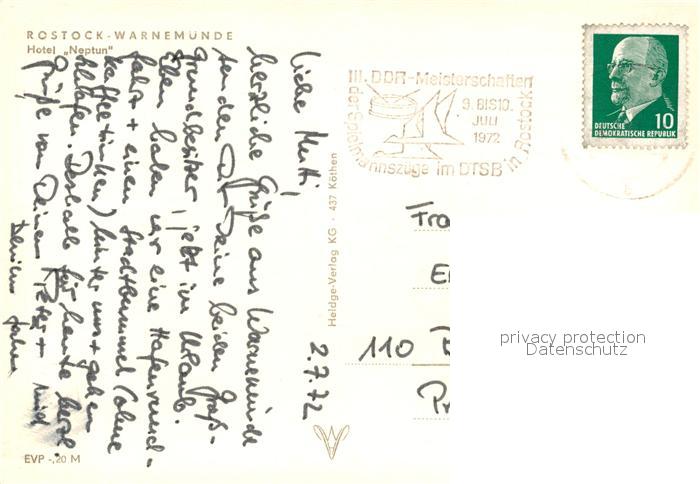 ROSTOCK-WARNEMÜNDE
Hotel „Neptun"
III. DDR-Meisterschaften
der Spielmannszüge im DTSB in Rostock
9. BIS 10.
JULI
1972
10
DEUTSCHE
DEMOKRATISCHE REPUBLIK
2.7.72
Liebe Mutti,
herzliche Grüße aus Warnemünde
senden Dir Deine beiden Groß-
grundbesitzer, jetzt im Urlaub.
Eben haben wir eine Hafenrund-
fahrt + einen Stadtbummel (ohne
Kaffeetrinken) hinter uns + gehen
schlafen. Deshalb für heute herzl.
Grüße von Deinem Peter +
Heldge-Verlag KG · 437 Köthen
Fra
110
EVP -,20 M
privacy protection
Datenschutz